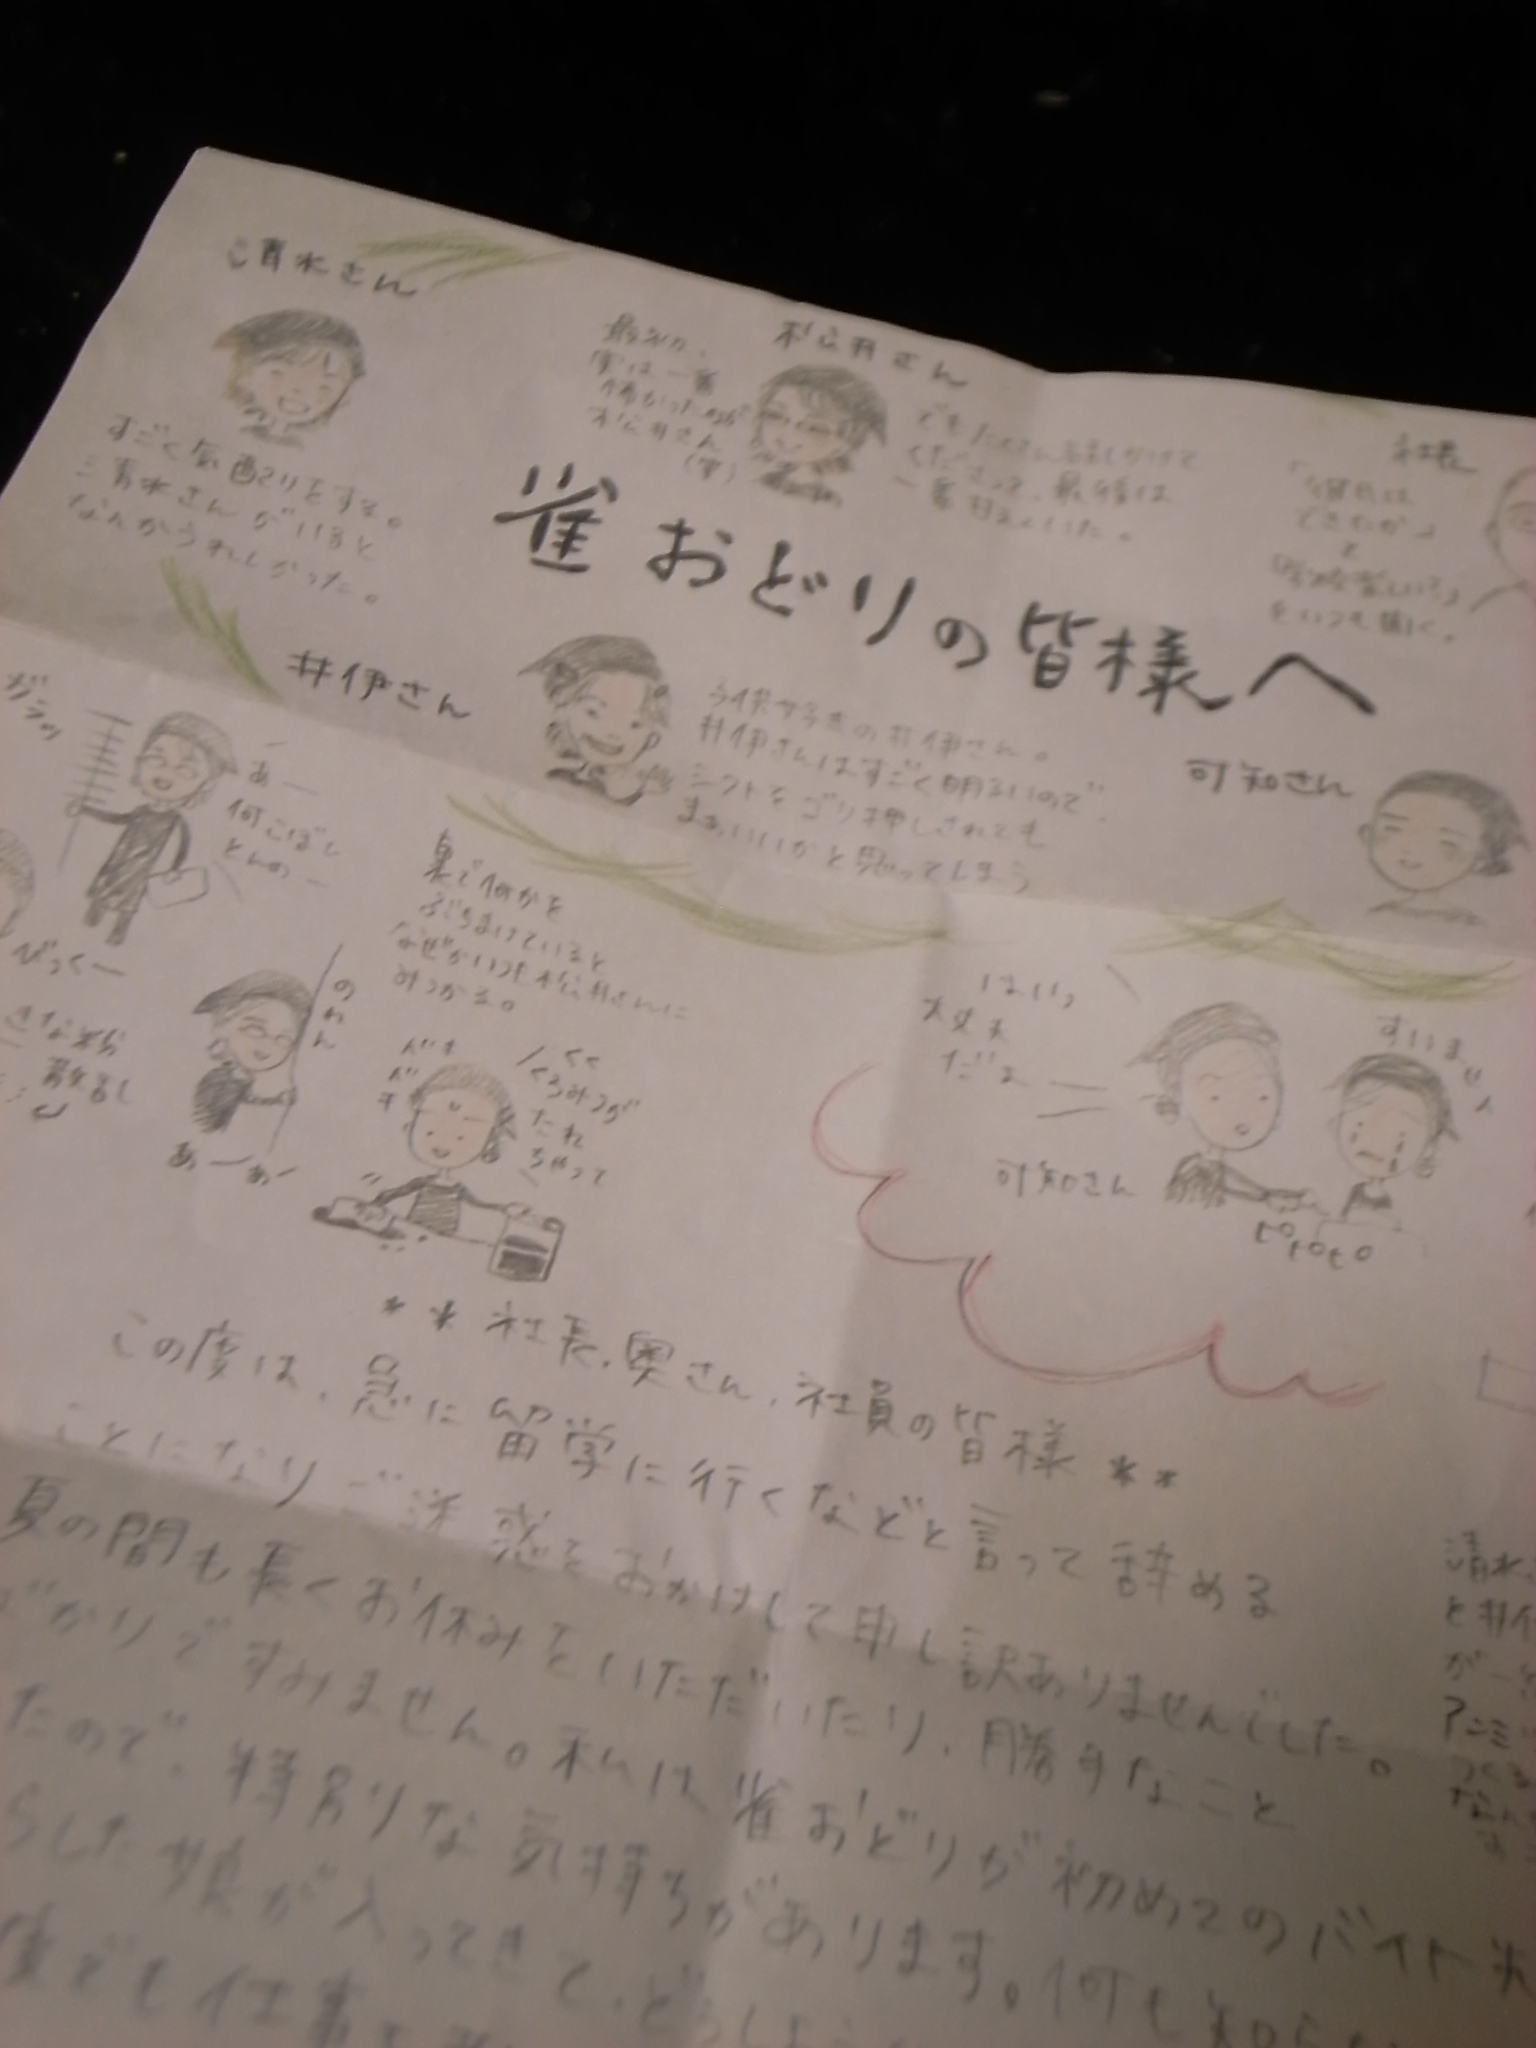 清水さん
すごく気配りをする。
清水さんがいると
なんかうれしかった。
松井さん
最初、
実は一番
怖かったのが
松井さん
(笑)
でもたくさん話しかけて
くださって、最後は
一番
社長
「彼氏は
できたか」
と
をいつも聞く。
雀おどりの皆様へ
井伊さん
井伊さん。
井伊さんはすごく明るいので、
シフトをゴリ押しされても
まぁいいかと思ってしまう
可知さん
ガラッ
あー
何こぼし
とんのー
びっくー
きな粉
散乱し
のれん
あーあ
裏で何かを
ぶちまけていると
なぜかいつも松井さんに
みつかる。
くるみつが
たれ
ちゃって
はいっ
大丈夫
だよ
すいません
可知さん
ピピピ
**社長、奥さん、社員の皆様**
この度は、急に留学に行くなどと言って辞める
ことになりご迷惑をおかけして申し訳ありませんでした。
夏の間も長くお休みをいただいたり、勝手なこと
ばかりですみません。私は雀おどりが初めてのバイト先
たので、特別な気持ちがあります。何も知らな
らした娘が入ってきて、どうしよう
でも仕事
清水
と井伊
が一
アンミ
つくる
なん